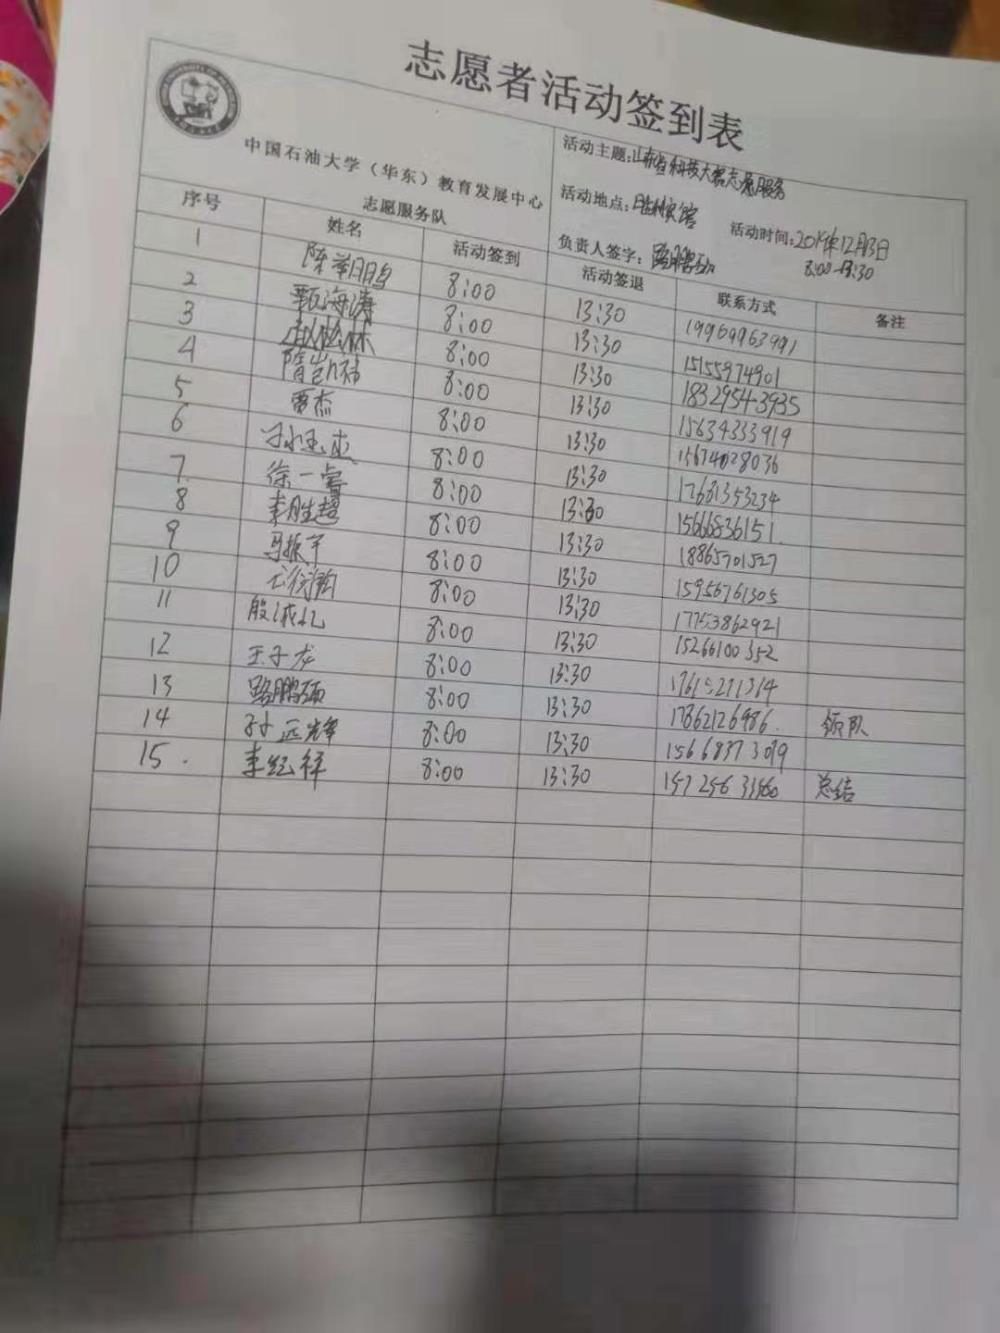 志愿者活动签到表
中国石油大学（华东）教育发展中心
志愿服务队
活动主题：山东省科技大 志愿服务
活动地点：胜利宾馆
活动时间：2019年12月13日
8:00-13:30
负责人签字：路鹏
序号 姓名 活动签到 活动签退 联系方式 备注
1 陈 8:00 13:30 19969963991
2 甄海涛 8:00 13:30 15155974901
3 赵松林 8:00 13:30 18329543935
4 隋凯 8:00 13:30 15634333919
5 曹杰 8:00 13:30 15674028036
6 8:00 13:30 17681353234
7 徐一 8:00 13:30 15666836151
8 李胜超 8:00 13:30 18865701527
9 马振宇 8:00 13:30 15956761305
10 8:00 13:30 17753862921
11 殷成亿 8:00 13:30 15266100352
12 王子龙 8:00 13:30 17615271314
13 路鹏 8:00 13:30 17862126986 领队
14 孙远锋 8:00 13:30
15 李纪祥 8:00 13:30 总结